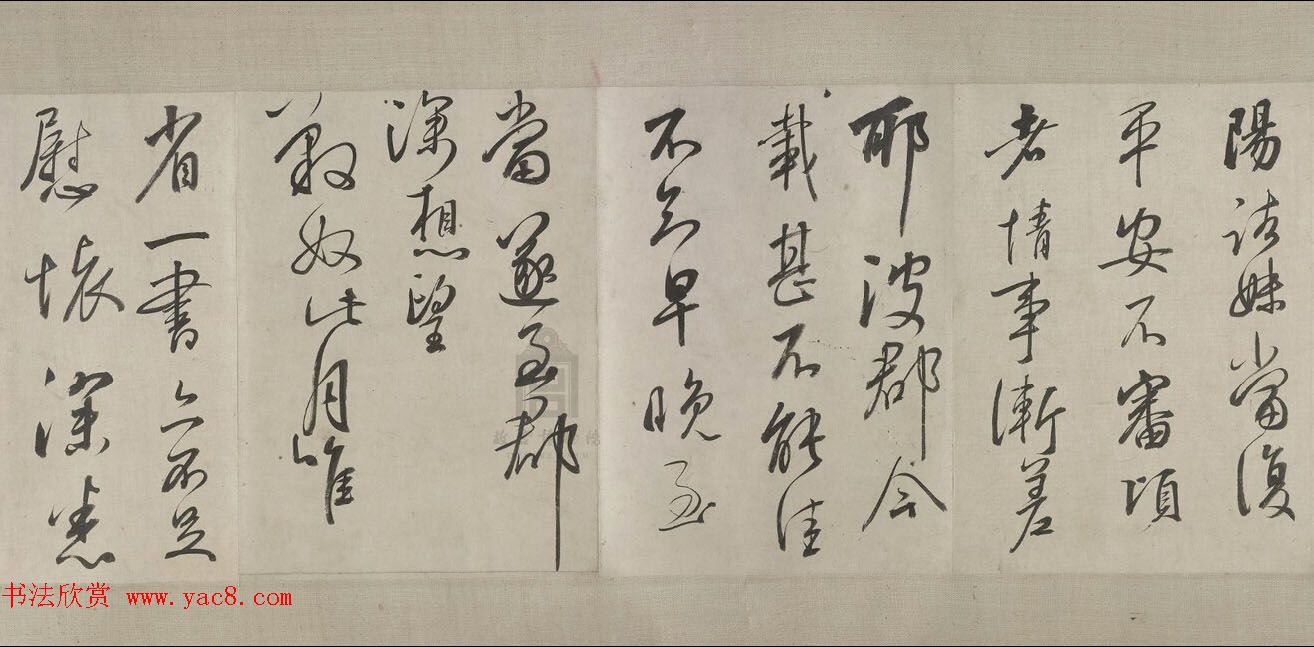 陽諸妹當復
平安不審頃
者情事漸差
耶彼郡今
載甚不能佳
不知早晚至
當遂至郡
深想望
敬奴此月唯
省一書亦不足
慰懷深悉
书法欣赏 www.yac8.com